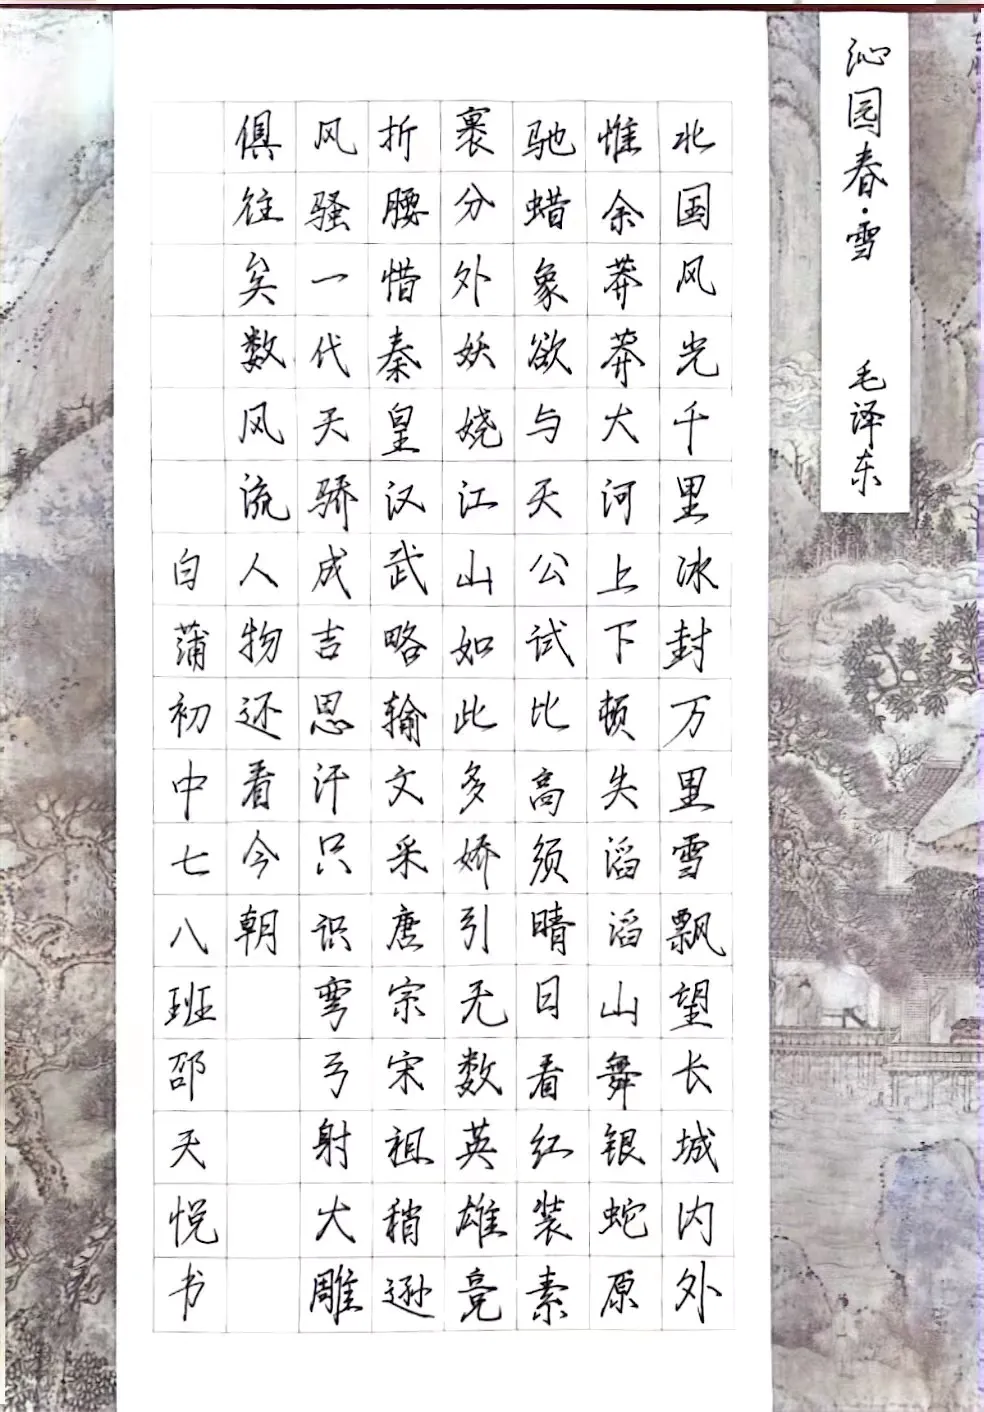 沁园春·雪
毛泽东
北国风光千里冰封万里雪飘望长城内外
惟余莽莽大河上下顿失滔滔山舞银蛇原
驰蜡象欲与天公试比高须晴日看红装素
裹分外妖娆江山如此多娇引无数英雄竞
折腰惜秦皇汉武略输文采唐宗宋祖稍逊
风骚一代天骄成吉思汗只识弯弓射大雕
俱往矣数风流人物还看今朝
白蒲初中七八班邵天悦书